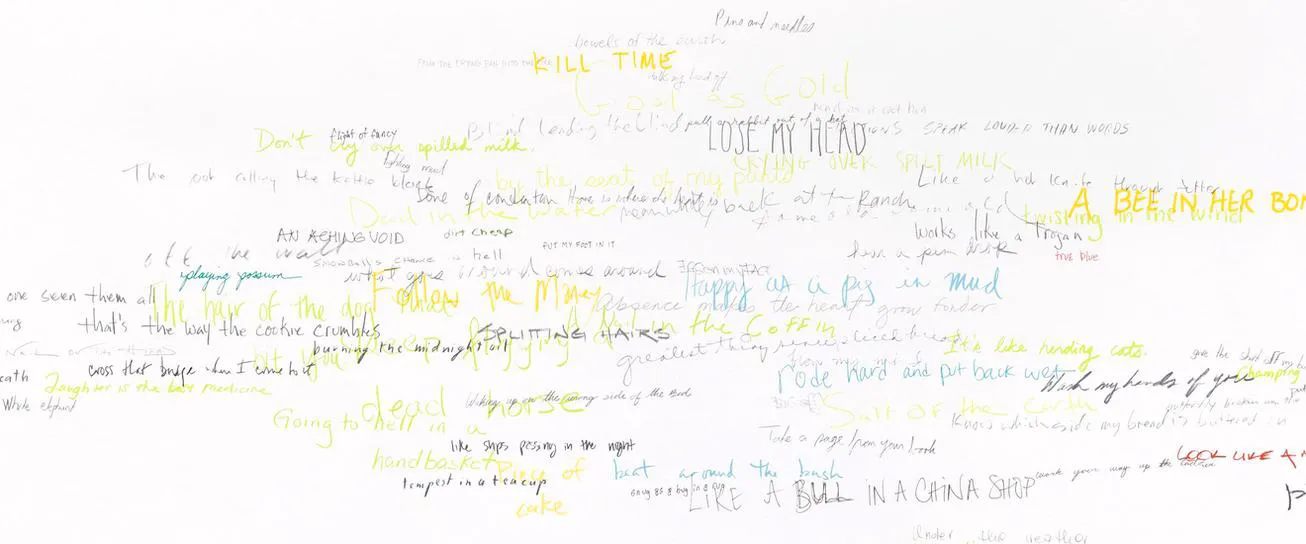 Pins and needles
bowels of the earth
FROM THE FRYING PAN INTO THE
KILL TIME
talking head off
Good as Gold
Blind leading the blind
pull a rabbit out of a hat
LOSE MY HEAD
SPEAK LOUDER THAN WORDS
flight of fancy
Don't cry over spilled milk.
CRYING OVER SPILT MILK
fighting mad
The pot calling the kettle black
by the seat of my pants
Like a hot knife through butter
Home is where the heart is
meanwhile back at the Ranch
Dead in the water
A BEE IN HER BON
twisting in the wind
works like a Trojan
AN ACHING VOID
dirt cheap
PUT MY FOOT IN IT
off the wall
SNOWBALL'S CHANCE in hell
true blue
playing possum
what goes around comes around
EGG ON MY FACE
Happy as a pig in mud
one seen them all
The hair of the dog that
Follow the Money
Absence makes the heart grow fonder
that's the way the cookie crumbles
SPLITTING HAIRS
Nail in the Coffin
burning the midnight oil
greatest thing since sliced bread
It's like herding cats.
give the shirt off my
cross that bridge when I come to it
rode hard and put back wet
Wash my hands of you
Laughter is the best medicine
White elephant
dead horse
Waking up on the wrong side of the Bed
Salt of the Earth
Know which side my bread is buttered on
Going to hell in a
handbasket
Take a page from your book
like ships passing in the night
LOOK LIKE A
Piece of
cake
beat around the bush
work your way up the ladder
tempest in a teacup
snug as a bug in a rug
LIKE A BULL IN A CHINA SHOP
Under the weather